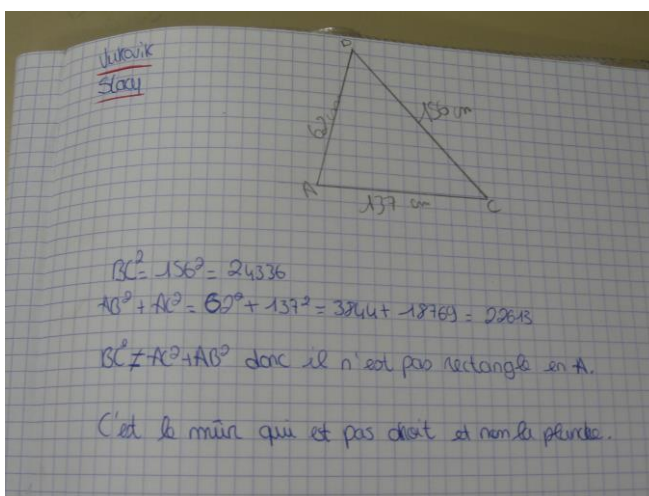 Vukovik
Stacy
B
62 cm
156 cm
A
137 cm
C
BC² = 156² = 24336
AB² + AC² = 62² + 137² = 3844 + 18769 = 22613
BC² ≠ AC² + AB² donc il n'est pas rectangle en A.
C'est le mûr qui est pas droit et non la planche.